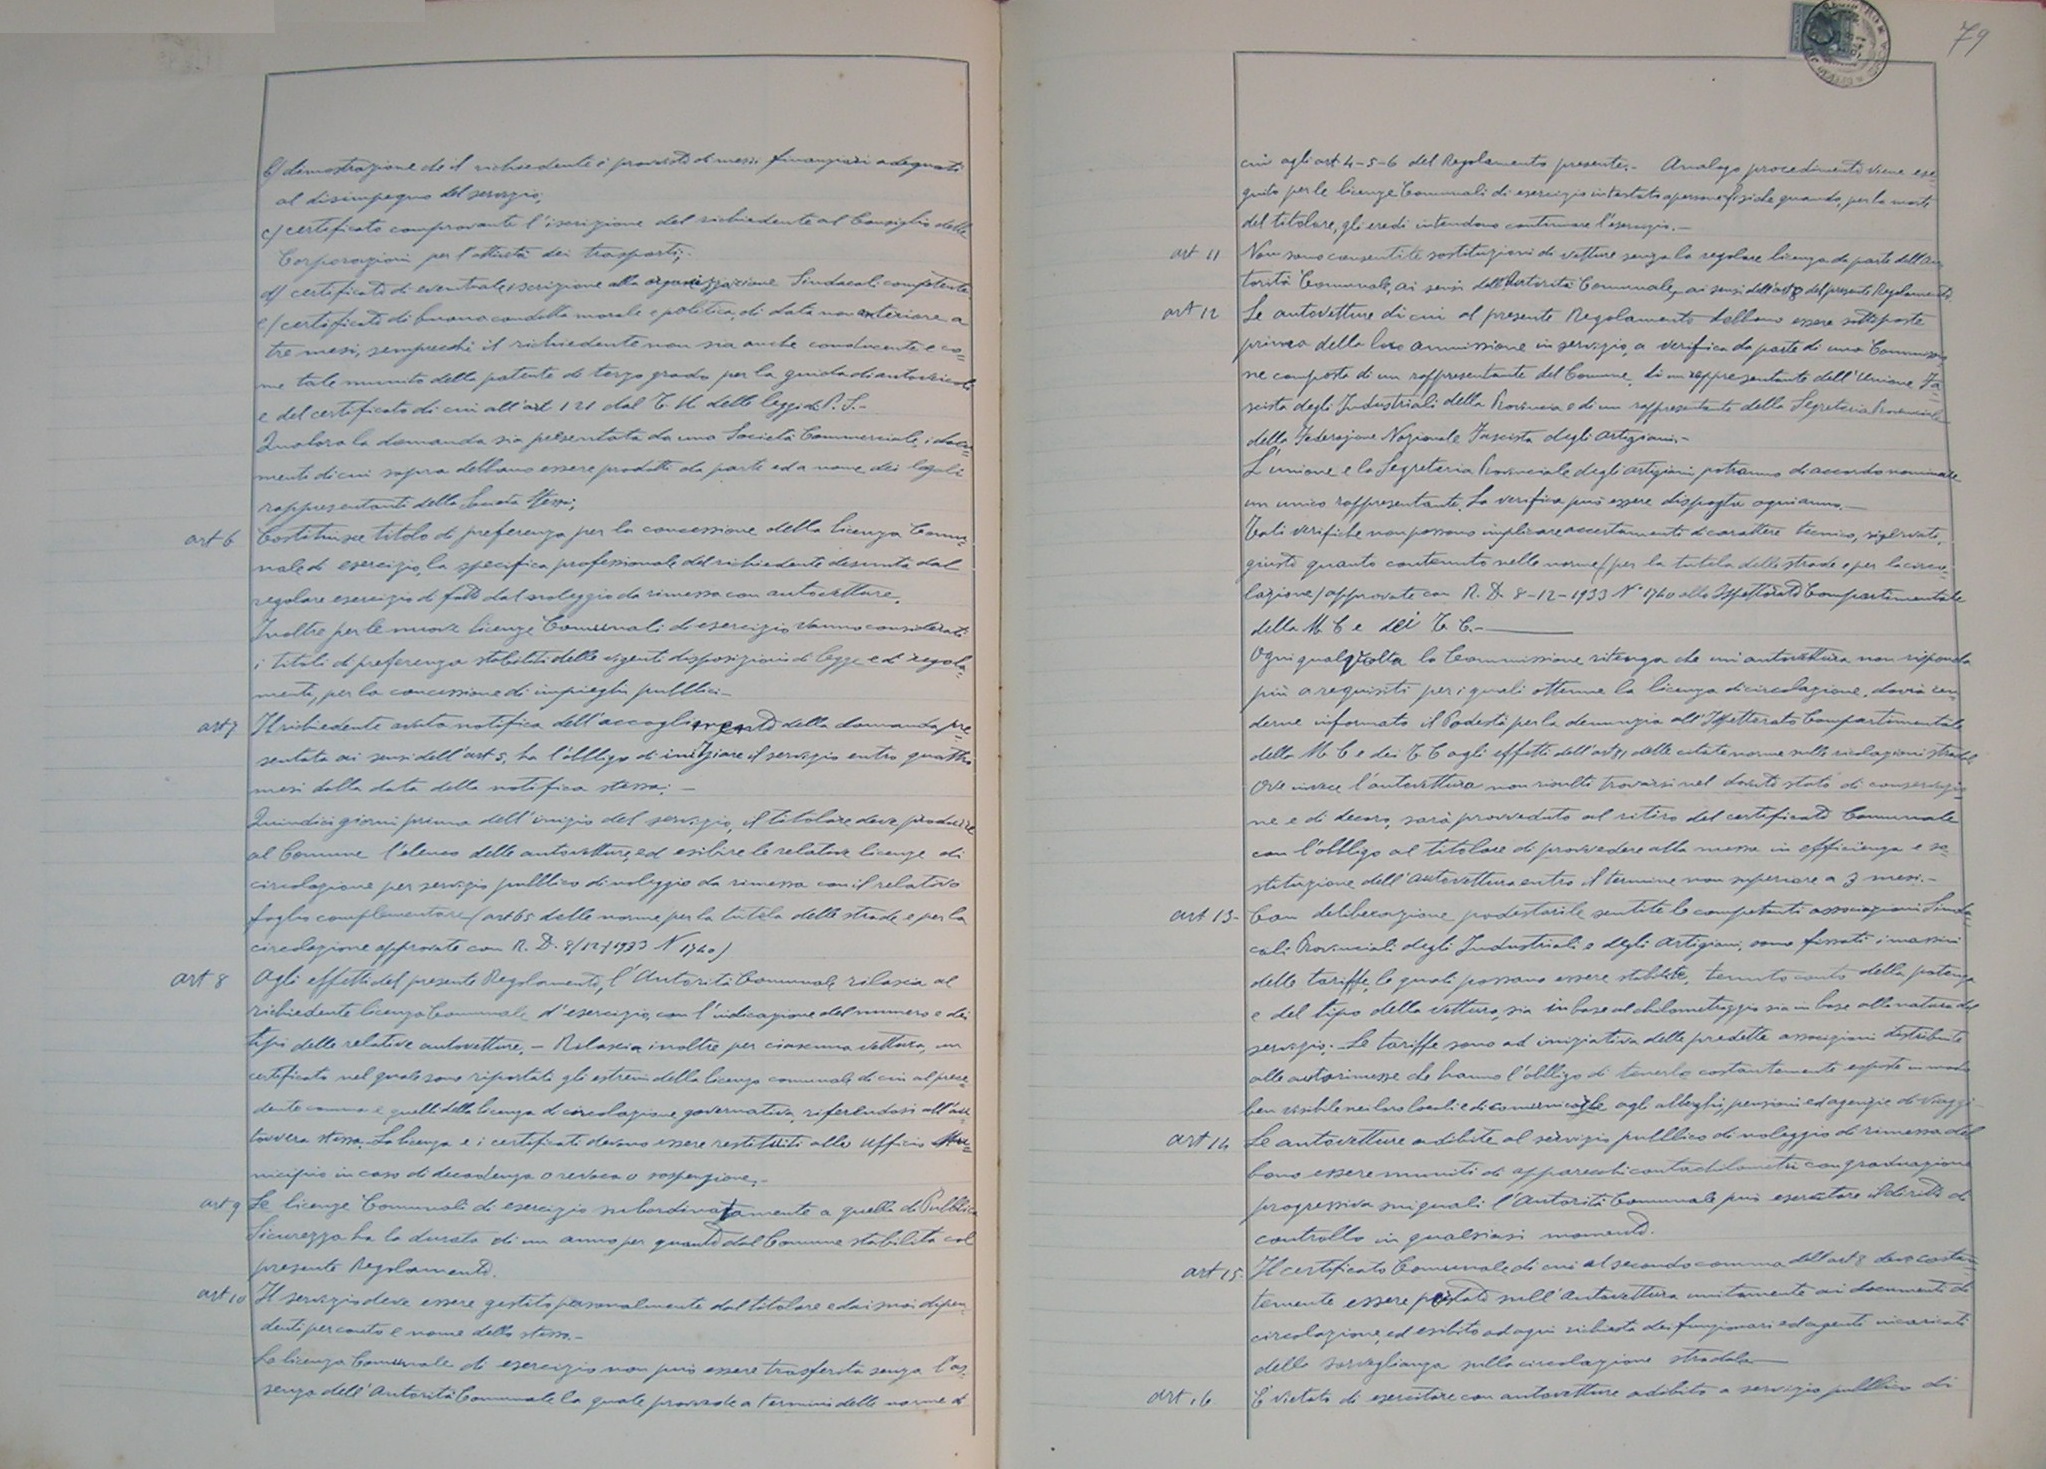 b) dimostrazione che il richiedente è provvisto di mezzi finanziari adeguati
al disimpegno del servizio;
c) certificato comprovante l'iscrizione del richiedente al Consiglio delle
Corporazioni per l'attività dei trasporti;
d) certificato di eventuale iscrizione alla organizzazione Sindacali competente.
e) certificato di buona condotta morale e politica, di data non anteriore a
tre mesi, sempreché il richiedente non sia anche conducente e co-
me tale munito della patente di terzo grado per la guida di autoveicoli
e del certificato di cui all'art 121 dal T. U. delle leggi di P. S.-
Qualora la domanda sia presentata da una Società Commerciale, i docu-
menti di cui sopra debbano essere prodotti da parte ed a nome dei legali
rappresentanti della Società stessa;
art 6 Costituisce titolo di preferenza per la concessione della licenza Comu-
nale di esercizio, la specifica professionale del richiedente desunta dal
regolare esercizio di fatto del noleggio da rimessa con autovetture.
Inoltre per le nuove licenze Comunali di esercizio vanno considerati
i titoli di preferenza stabiliti delle vigenti disposizioni di legge e di regola-
menti, per la concessione di impieghi pubblici-
art 7 Il richiedente avuta notifica dell'accoglimento della domanda pre-
sentata ai sensi dell'art 5, ha l'obbligo di iniziare il servizio entro quattro
mesi dalla data della notifica stessa; -
Quindici giorni prima dell'inizio del servizio, il titolare deve produrre
al Comune l'elenco delle autovetture, ed esibire le relative licenze di
circolazione per servizio pubblico di noleggio da rimessa con il relativo
foglio complementare (art 65 delle norme per la tutela delle strade e per la
circolazione approvate con R. D. 8/12/1933 N 1740)
art 8 Agli effetti del presente Regolamento, l'Autorità Comunale rilascia al
richiedente licenza Comunale d'esercizio, con l'indicazione del numero e dei
tipi delle relative autovetture. - Rilascia inoltre per ciascuna vettura, un
certificato nel quale sono riportati gli estremi della licenza comunale di cui al prece-
dente comma e quelli della licenza di circolazione governativa, riferendosi all'au-
tovvera stessa. La licenza e i certificati devono essere restituiti allo Ufficio Mu-
nicipio in caso di decadenza o revoca o sospensione.-
art 9 Le licenze Comunali di esercizio subordinatamente a quella di Pubblica
Sicurezza ha la durata di un anno per quanto dal Comune stabilita col
presente Regolamento.
art 10 Il servizio deve essere gestito personalmente dal titolare e dai suoi dipen-
denti per conto e nome dello stesso.-
La licenza Comunale di esercizio non può essere trasferita senza l'as-
senso dell'Autorità Comunale la quale provvede a termini delle norme di
79
cui agli art 4-5-6 del Regolamento presente.- Analogo procedimento viene ese-
guito per le licenze Comunali di esercizio intestato a persone fisiche quando, per la morte
del titolare, gli eredi intendono continuare l'esercizio.-
art 11 Non sono consentite sostituzioni di vetture senza la regolare licenza da parte dell'Au-
torità Comunale, ai sensi dell'Autorità Comunale, ai sensi dell'art 8 del presente Regolamento
art 12 Le autovetture di cui al presente Regolamento debbano essere sottoposte
prima della loro ammissione in servizio, a verifica da parte di una Commissio-
ne composta di un rappresentante del Comune, di un rappresentante dell'Unione Fa-
scista degli Industriali della Provincia e di un rappresentante della Segreteria Provinciale
della Federazione Nazionale Fascista degli Artigiani.-
L'unione e la Segreteria Provinciale degli artigiani potranno di accordo nominale
un unico rappresentante. La verifica può essere disposta ogni anno.-
Tali verifiche non possono implicare accertamento di carattere tecnico,
giusto quanto contenuto nelle norme (per la tutela delle strade e per la circo-
lazione) approvate con R. D. 8-12-1933 N° 1740 allo Ispettorato Compartimentale
della M C e dei T. C.-
Ogni qualvolta la Commissione ritenga che un'autovettura non risponda
più a requisiti per i quali ottenne la licenza di circolazione, dovrà ren-
derne informato il Podestà per la denunzia all'Ispettorato Compartimentale
della M C e dei T C agli effetti dell'art delle citate norme sulle
Ove invece l'autovettura non risulti trovarsi nel dovuto stato di conservazio-
ne e di decoro, sarà provveduto al ritiro del certificato Comunale
con l'obbligo al titolare di provvedere alla messa in efficienza e so-
stituzione dell'Autovettura entro il termine non superiore a 3 mesi.-
art 13- Con deliberazione podestarile sentite le competenti associazioni Sinda-
cali Provinciali degli Industriali e degli Artigiani, sono fissati i massimi
delle tariffe, le quali possano essere stabilite, tenuto conto della potenza
e del tipo della vettura, sia in base al chilometraggio sia in base alla natura del
servizio.- Le tariffe sono ad iniziativa delle predette associazioni distribuite
alle autorimesse che hanno l'obbligo di tenerle costantemente esposte in modo
ben visibile nei loro locali e di comunicarle agli alberghi, pensioni ed agenzie di viaggi
art 14 Le autovetture adibite al servizio pubblico di noleggio di rimessa deb-
bono essere muniti di apparecchi contachilometri con graduazione
progressiva sui quali l'Autorità Comunale può esercitare il diritto di
controllo in qualsiasi momento.
art 15. Il certificato Comunale di cui al secondo comma dell'art 8 deve costan-
temente essere portato sull'Autovettura unitamente ai documenti di
circolazione, ed esibito ad ogni richiesta dei funzionari ed agenti incaricati
della sorveglianza sulla circolazione stradale-
art. 16 È vietato di esercitare con autovetture adibito a servizio pubblico di